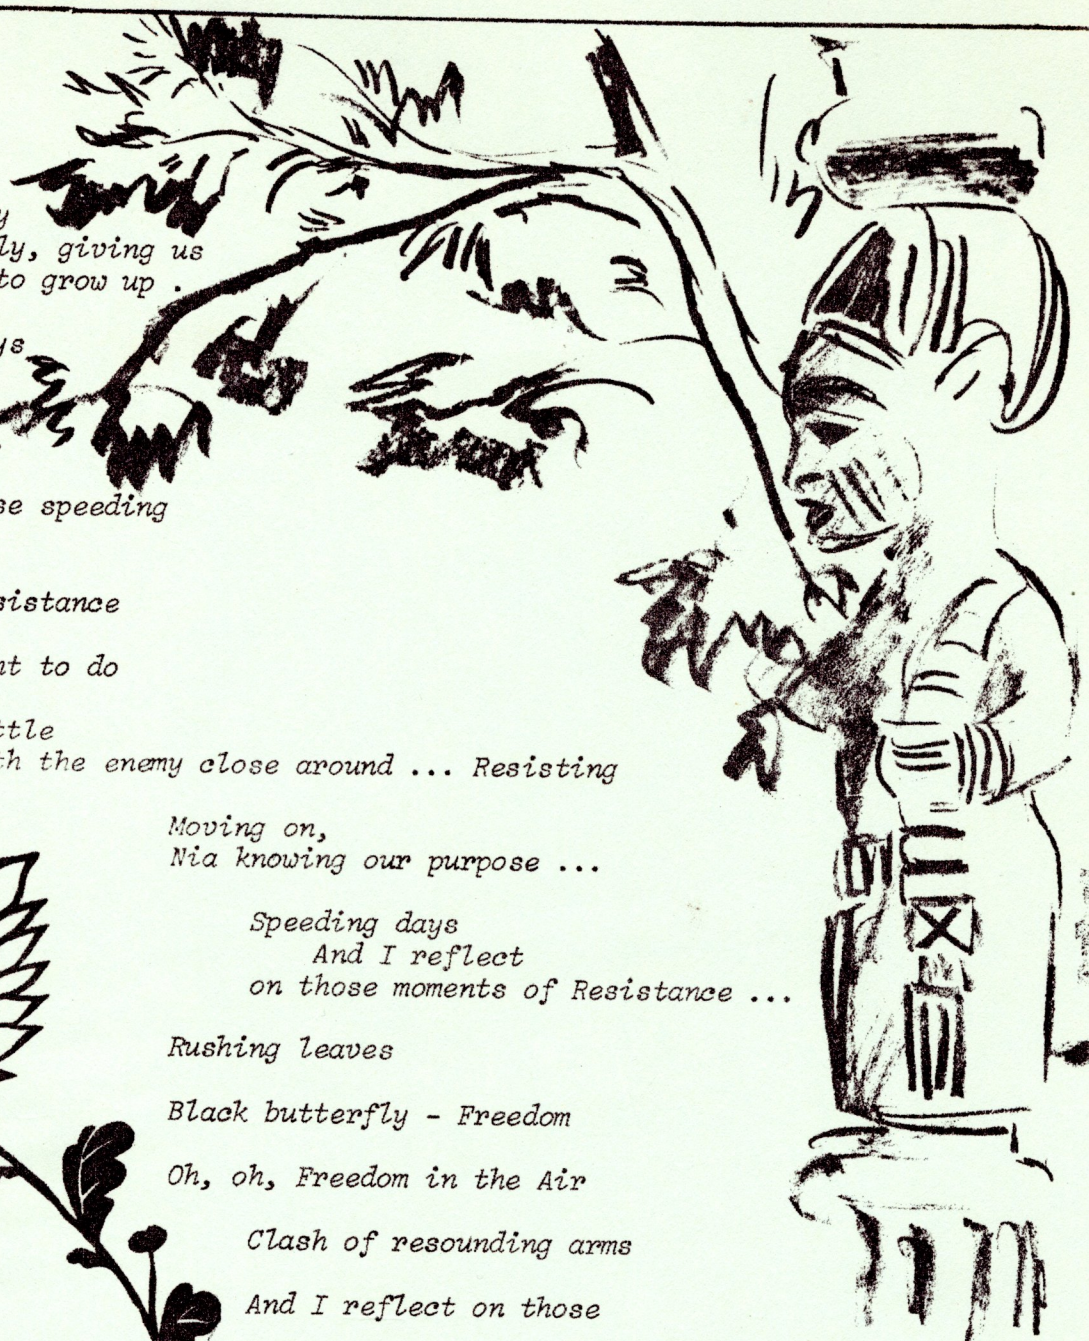 giving us
to grow up .
speeding
to do
the enemy close around ... Resisting
Moving on,
Nia knowing our purpose ...
Speeding days
And I reflect
on those moments of Resistance ...
Rushing leaves
Black butterfly - Freedom
Oh, oh, Freedom in the Air
Clash of resounding arms
And I reflect on those